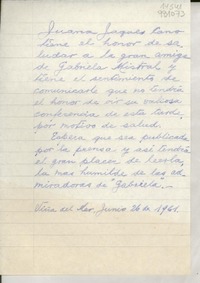 Juana Jaques Cano
tiene el honor de sa
ludar a la gran amiga
de Gabriela Mistral y
tiene el sentimiento de
comunicarle que no tendrá
el honor de oir su valiosa
conferencia de esta tarde,
por motivo de salud.
Espera que sea publicada
por la prensa y así tendrá
el gran placer de leerla,
la más humilde de las ad-
miradoras de "Gabriela".-
Viña del Mar, Junio 26 de 1961.